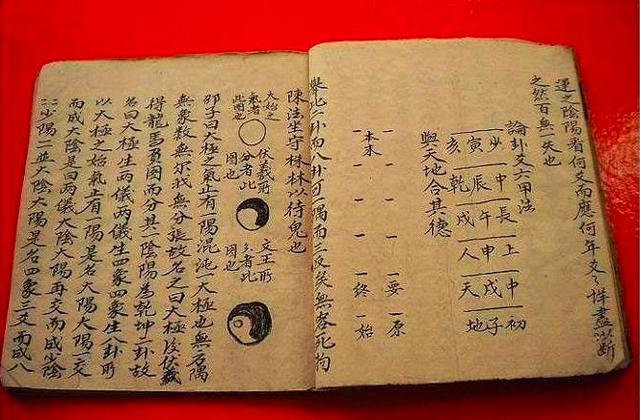 運之陰陽看何爻而應何年爻々詳盡以斷
之然百無一失也
論卦爻六甲法
少 中 長 上 中 初
寅 辰 午 申 戌 子
亥 乾 戌 人 天 地
與天地合其德
要 原
本末 終 始
舉此二卦而八卦可一隅而三反矣無容死拘
陳法坐守株林以待兔也
大始之
氣者
此圈也
伏羲所
分者此
圖也
文王所
分者此
圖也
邵子曰大極之氣止有一陽混沌大極也無方隅
無象數無形我無分張故名之曰大極後伏羲
得龍馬負圖而分其一陰陽為乾坤二卦故
名曰大極生兩儀兩儀生四象四象生八卦所
以大極之始氣止有一陽是名大陽大陽一交
而成大陰是曰兩儀大陰大陽再交而成少陰
少陽一並大陰大陽是名四象三爻而成八